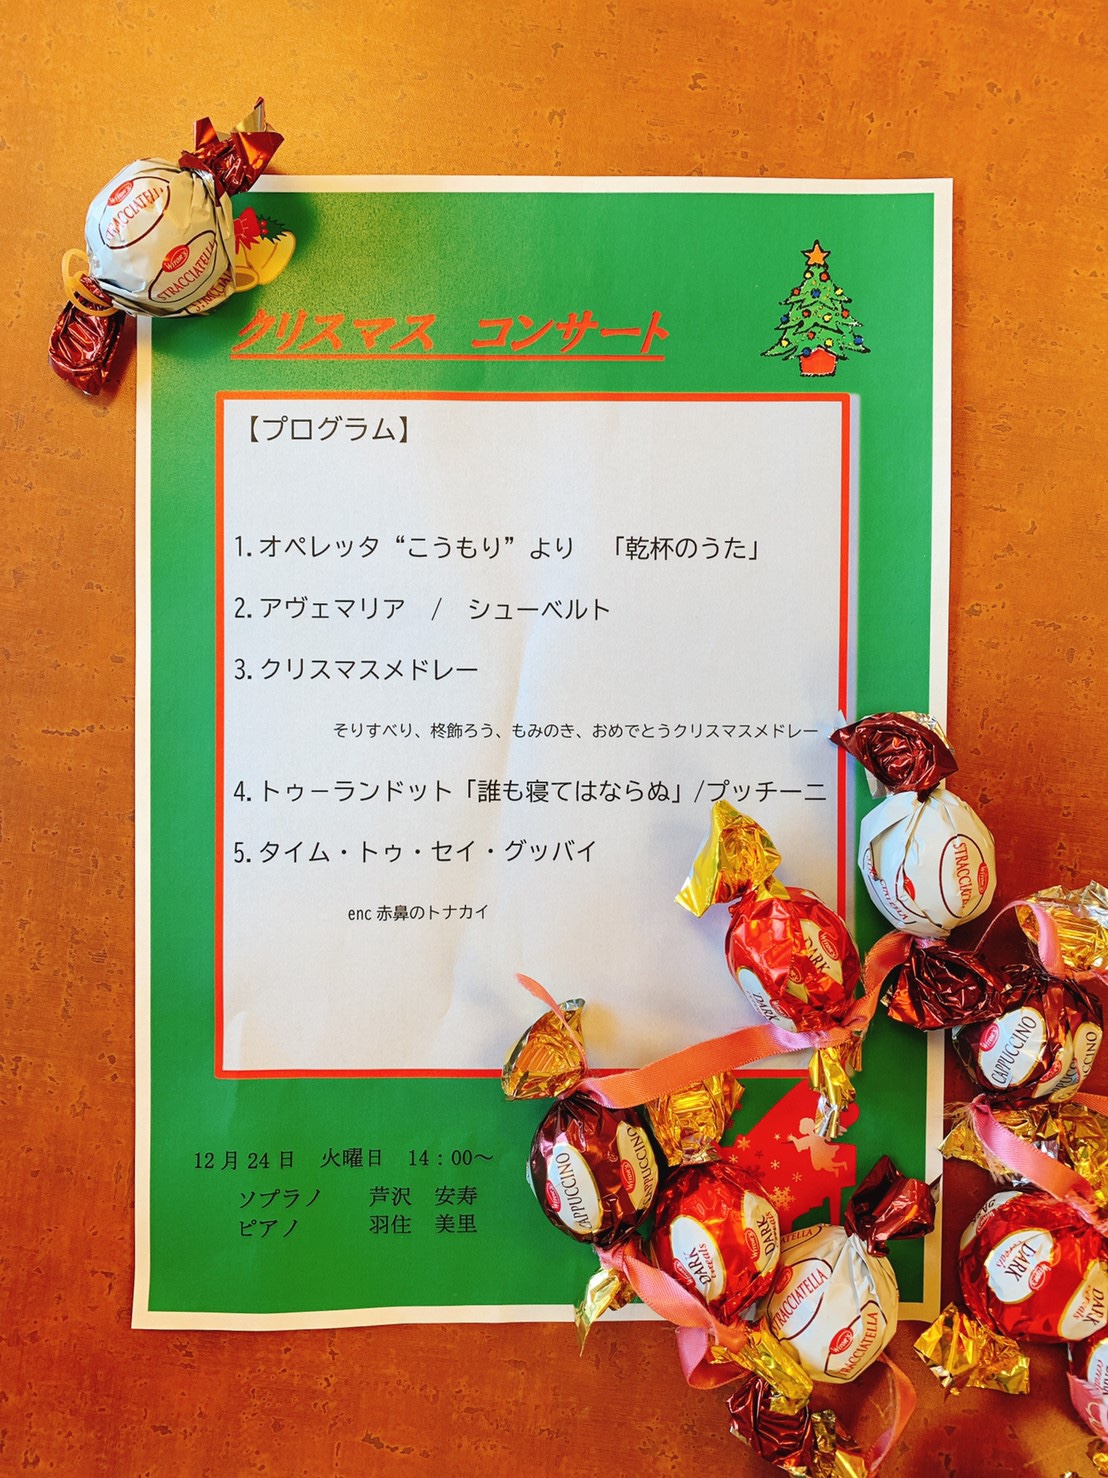 クリスマス　コンサート
【プログラム】
1. オペレッタ “こうもり” より　「乾杯のうた」
2. アヴェマリア　/　シューベルト
3. クリスマスメドレー
そりすべり、柊飾ろう、もみのき、おめでとうクリスマスメドレー
4. トゥーランドット「誰も寝てはならぬ」/プッチーニ
5. タイム・トゥ・セイ・グッバイ
enc 赤鼻のトナカイ
12月24日　火曜日　14：00～
ソプラノ　　芦沢　安寿
ピアノ　　　羽住　美里
STRACCIATELLA
STRACCIATELLA
STRACCIATELLA
DARK
DARK
CAPPUCCINO
CAPPUCCINO
CAPPUCCINO
DARK
DARK
STRACCIATELLA
STRACCIATELLA
DARK
DARK